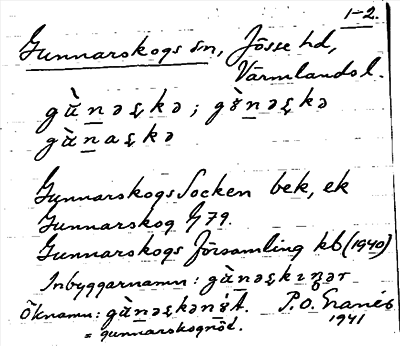 1-2.
Gunnarskogs sn, Jösse hd,
Värmlands l.
gù̀nəʂkə; gɞ̀nəʂkə
gù̀naʂkə
Gunnarskogs Socken bek, ek
Gunnarskog G 79.
Gunnarskogs Församling kb (1940)
Inbyggarnamn: gù̀nəʂkıŋər
Öknamn: P. O. Granér
1941
= gunnarskognöt.